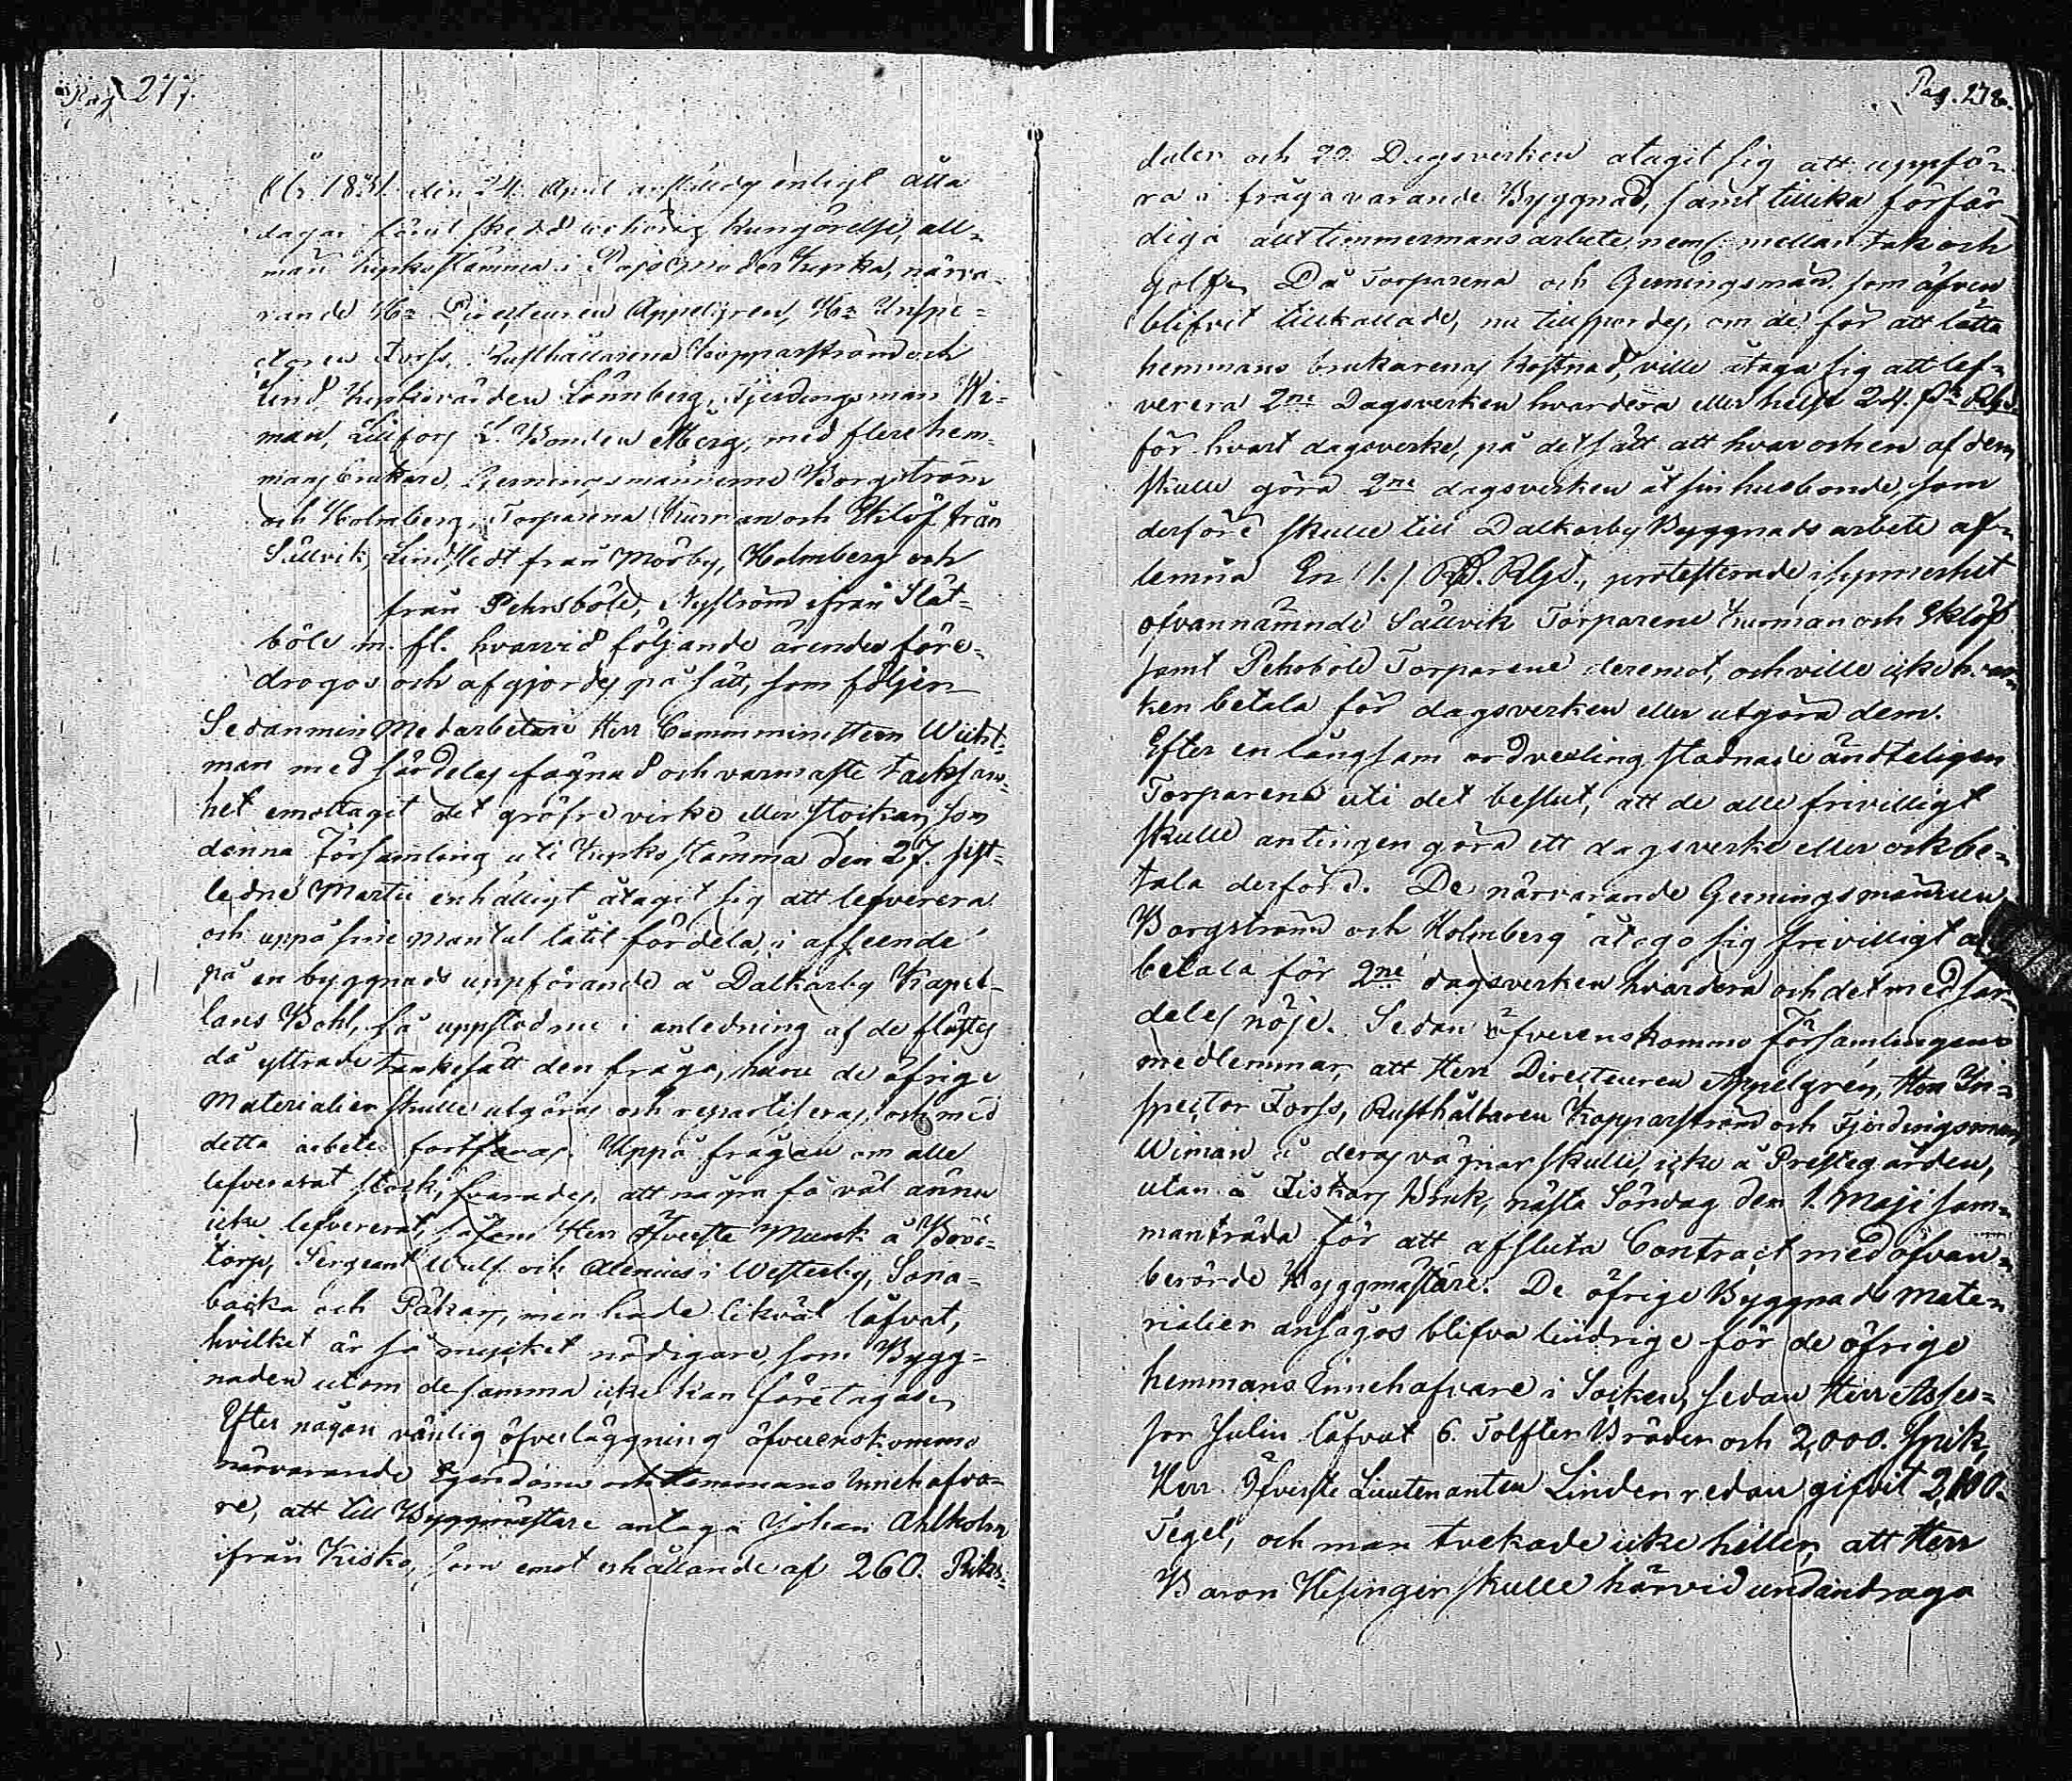 Pag 277.
År 1831. den 24. April anstäldes enligt åtta
dagar förut skedd behörig kungörelse, all-
män kyrkostämma i Pojo moder kyrka, närva-
rande Hr Directeuren Appelgren, Hr Inspe-
ctoren Forss, Rusthållarena Kopparström och
Lind Kyrkovärden Lönnberg, Fjerdingsman Wi-
man, Lillfors L. Bonden Åberg, med flere hem-
mans brukare, Gerningsmännerne Borgström
och Holmberg, Torparena Kurman och Eklöf från
Sällvik, Lindstedt från Mörby, Holmberg och
från Pehrsböle, Nyström ifrån Slät-
böle m. fl. hvarvid följande ärender före-
drogos och afgjordes på sätt, som följer.
Sedan min Medarbetare Herr Comministern Wicht-
man med särdeles fägnad och varmaste tacksam-
het emottagit det gröfre virke eller stockar, som
denna Församling uti Kyrkostämma den 27. sist-
ledne Martii enhälligt åtagit sig att leverera
och uppå sine mantal låtit fördela, i afseende
på en byggnads uppförande å Dalkarby Kapel-
lans Bohl, så uppstod nu i anledning af de flästes
då yttrade tankesätt den fråga, huru de öfrige
Materialier skulle utgöras och repartiseras, och med
detta arbete fortfaras. Uppå frågan om alle
lefvererat stock, svarades, att några få väl ännu
icke lefvererat, såsom Herr Öfverste Munck å Böle-
torp, Sergeant Wulf och Alenius i Westerby, Sona-
backa och Påkars, men hade likväl låfvat,
hvilket är så mycket nödigare, som Bygg-
naden utom desamma icke kan företagas.
Efter någon vänlig öfverläggning öfverenskommo
närvarande Egendoms och Hemmans Innehafva-
re, att till Byggmästare antaga Johan Ahlholm
ifrån Kisko, som emot erhållande af 260. Riks-
Pag. 278.
daler och 20. Dagsverken åtagit sig att uppfö-
ra i frågavarande Byggnad, samt tillika förfär-
diga allt timmermans arbete neml. mellan tak och
golf. Då Torparena och Gerningsmän, som äfven
blifvit tillkallade, nu tillspordes, om de för att lätta
hemmans brukarenas kostnad, ville åtaga sig att lef-
verera 2ne Dagsverken hvardera eller helst 24. sk Rgs.
för hvart dagsverke, på det sätt att hvar och en af dem
skulle göra 2ne dagsverken åt sin husbonde, som
derföre skulle till Dalkarby Byggnads arbete af-
lemna En (1.) RD. Rgs., protesterade isynnerhet
ofvannämnde Sällvik Torparene Kurman och Eklöf
samt Pehrsböle Torparene deremot, och ville icke hvar-
ken betala för dagsverken eller utgöra dem.
Efter en långsam ordvexling stadnade ändteligen
Torparena uti det beslut, att de alle frivilligt
skulle antingen göra ett dagsverke eller ock be-
tala derföre. De närvarande Gerningsmännen
Borgström och Holmberg åtogo sig frivilligt att
betala för 2ne dagsverken hvardera och det med sär-
deles nöje. Sedan öfverenskommo Församlingens
medlemmar, att Herr Directeuren Appelgren, Herr In-
spector Forss, Rusthållaren Kopparström och Fjerdingsman
Wiman å deras vägnar skulle, icke å Prestegården,
utan å Fiskars Bruk, nästa Söndag den 1. Maji sam-
manträda för att afsluta Contract med ofvan-
berörde Byggmästare. De öfrige Byggnads mate-
rialier ansågos blifva lindrige för de öfrige
hemmans Innehafvare i Socken, sedan Herr Asses-
sor Julin låfvat 6. Tolfter Bräder och 2,000. Spik,
Herr Öfverste Lieutenanten Linder redan gifvit 2,100.
Tegel, och man tvekade icke heller, att Herr
Baron Hisinger skulle härvid undandraga